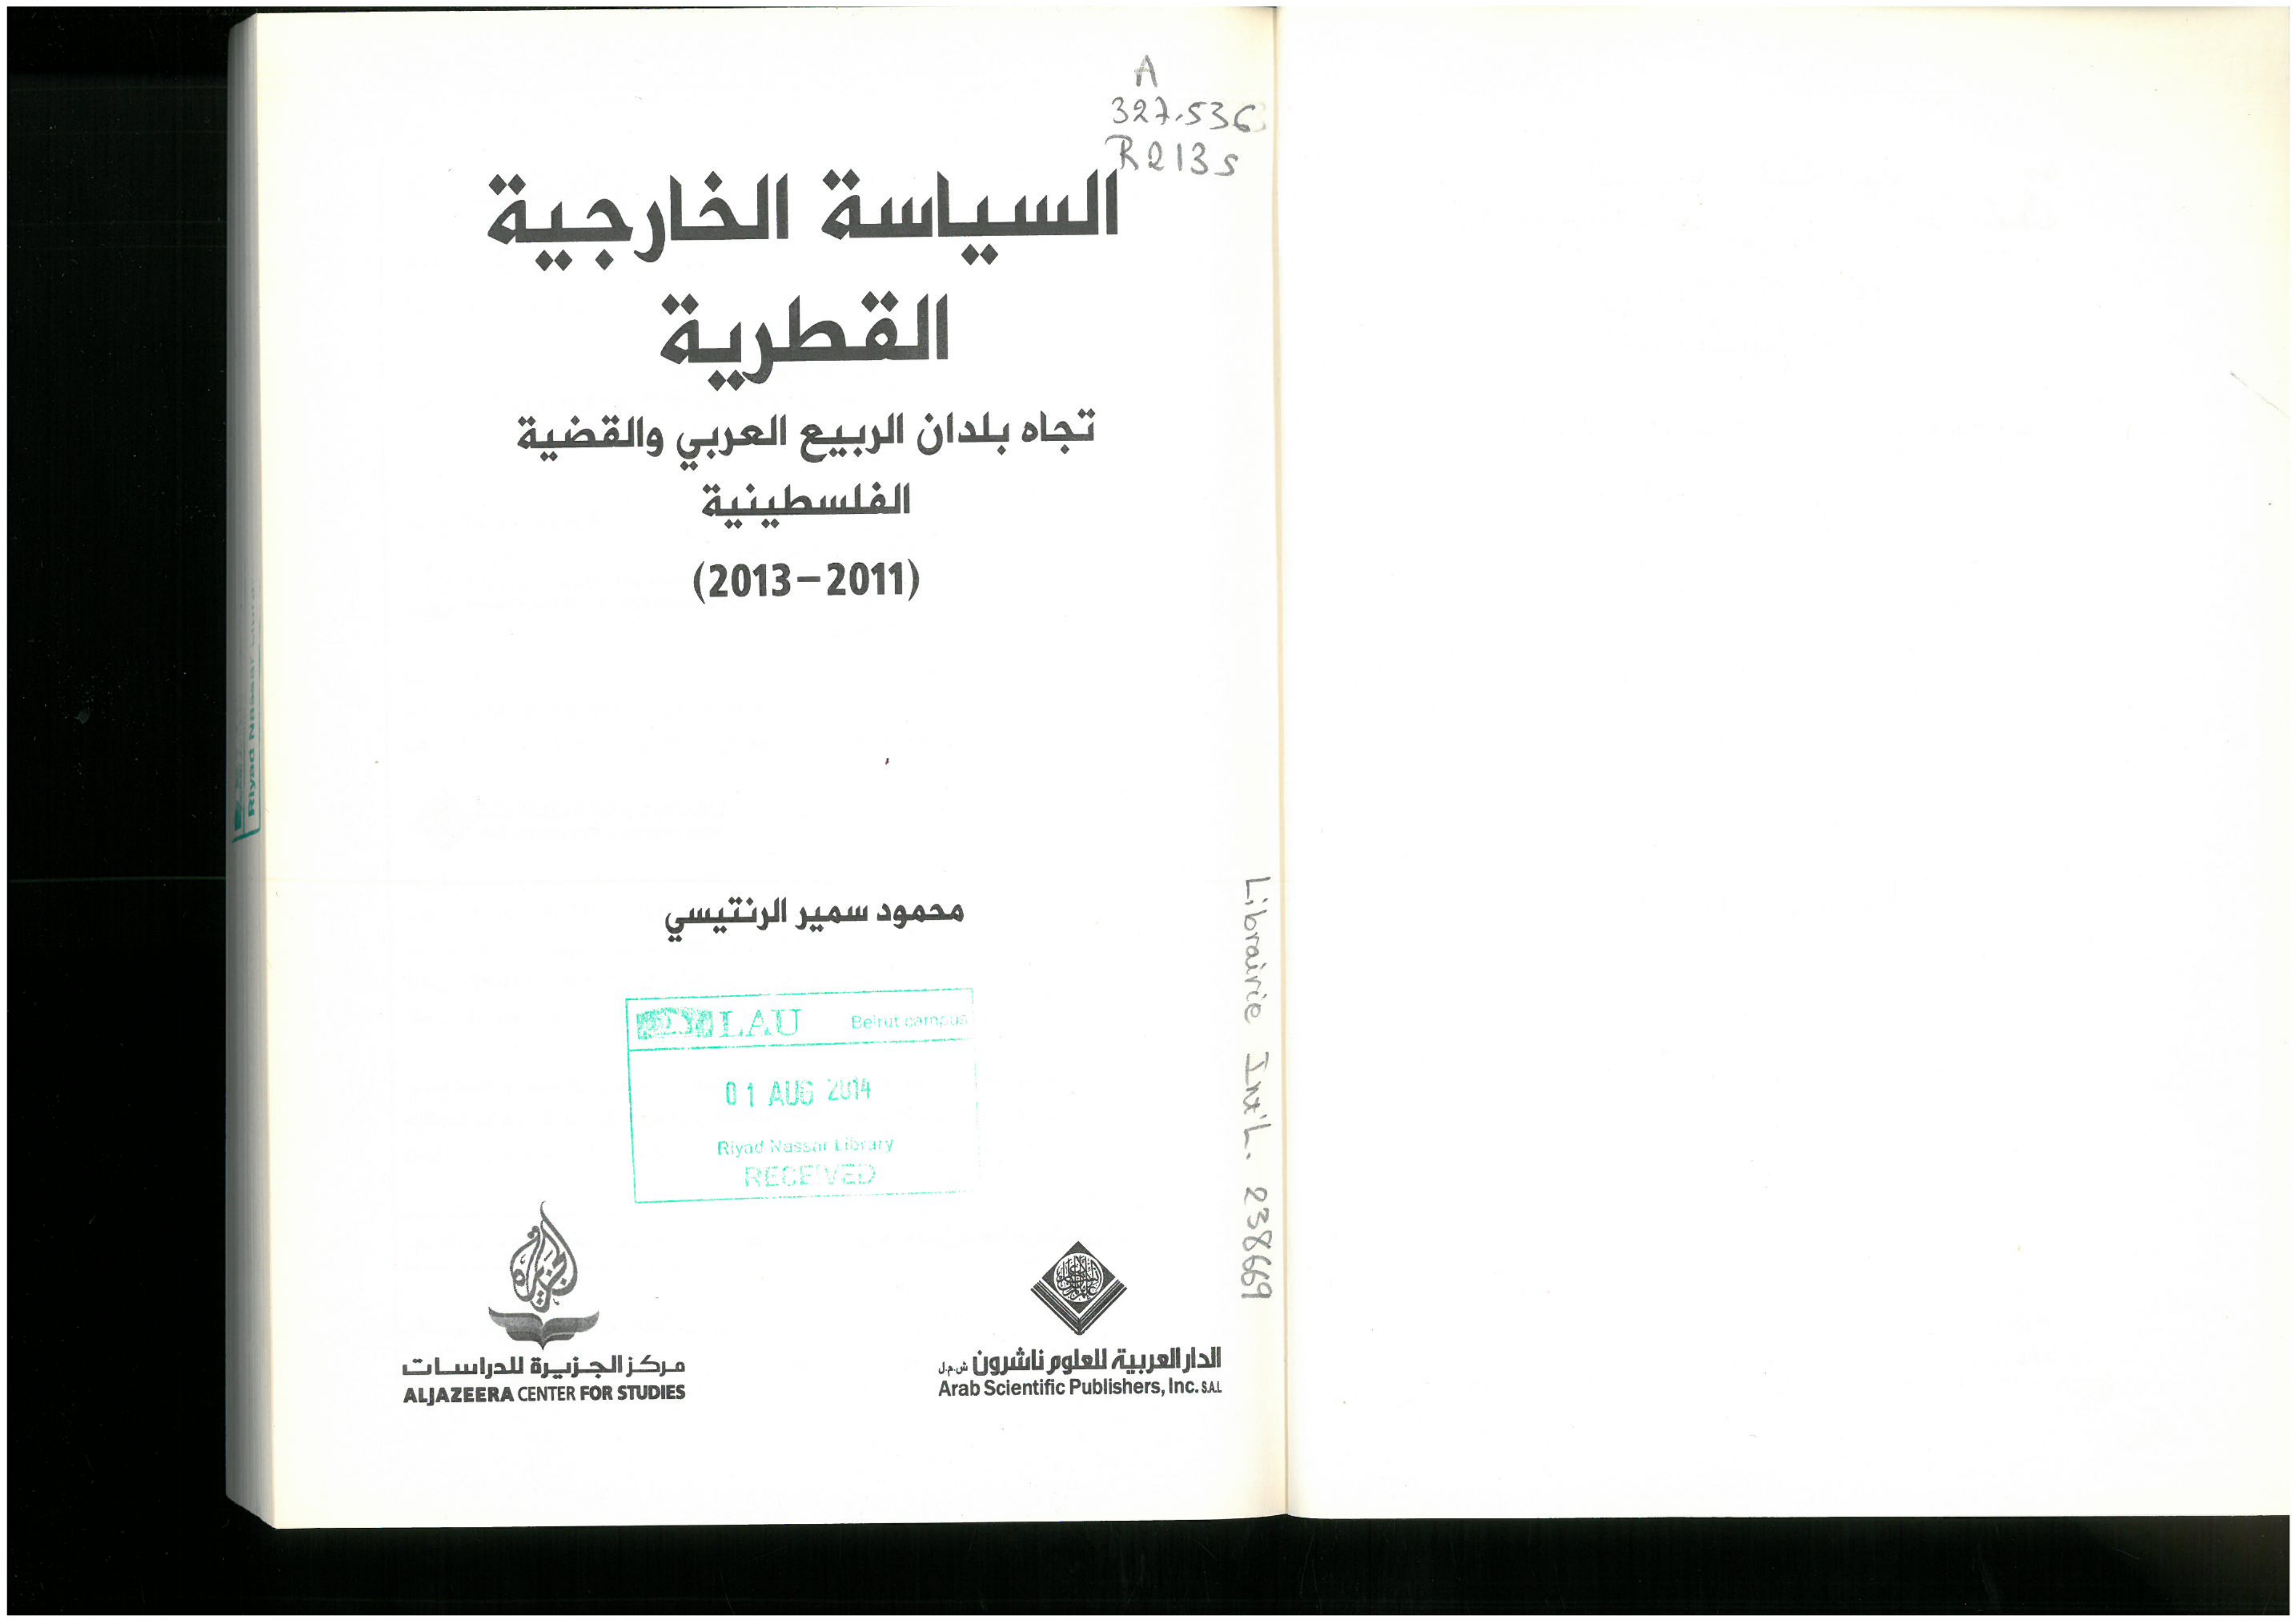 A
327.536
R213s
السياسة الخارجية
القطرية
تجاه بلدان الربيع العربي والقضية
الفلسطينية
(2011–2013)
محمود سمير الرنتيسي
LAU Beirut campus
01 AUG 2014
Riyad Nassar Library
RECEIVED
Librairie Int'L. 238669
الجزيرة
مركز الجزيرة للدراسات
ALJAZEERA CENTER FOR STUDIES
الدار العربية للعلوم ناشرون ش.م.ل
Arab Scientific Publishers, Inc. S.A.L
Riyad Nassar